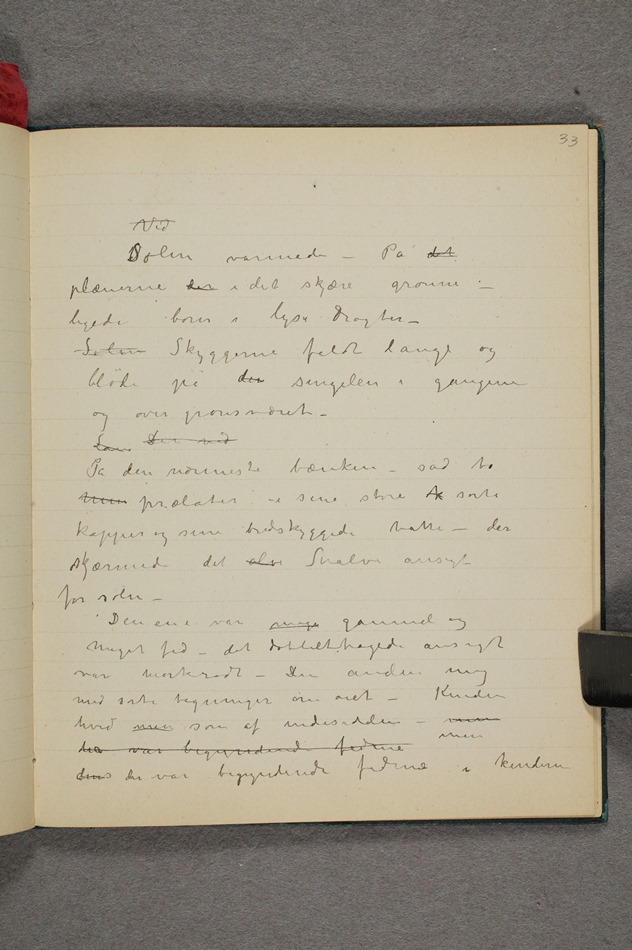 33
Ved
Solen varmede – På det
plænerne der i det skjære grønne –
legede børn i lyse Dragter –
Solen Skyggerne faldt lange og
bløde på den singelen i gangene
og over grønsværet –
Som Der ved
På den nærmeste bænken – sad to
prælater – i sine store sorte
kapper og sine bredskyggede hatte – der
skjærmede det halve ansigt
for solen –
Den ene var meget gammel og
meget fed – det dobbelthagede ansigt
var mørkerødt – Den anden ung
med sorte bryninger om øiet – Kinden
hvid men som af indesidden – men
der var begyndende fedme men
der var begyndende fedme i kinderne